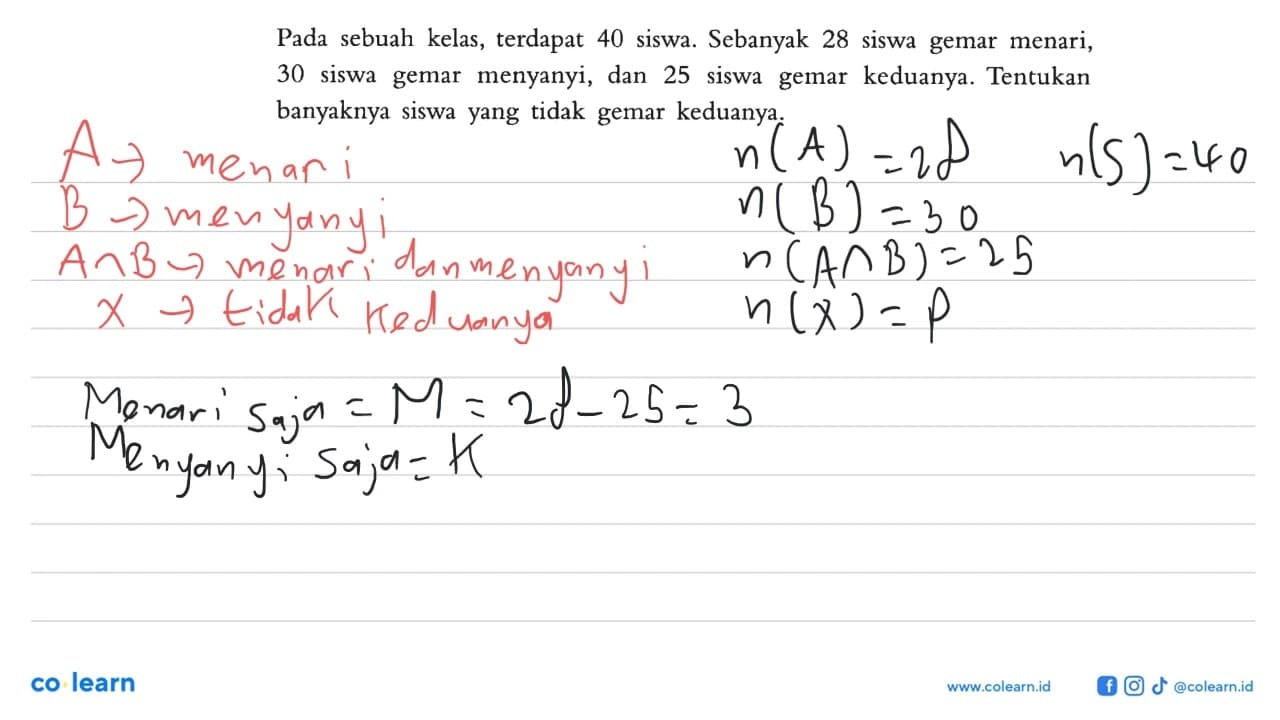 Pada sebuah kelas, terdapat 40 siswa. Sebanyak 28 siswa gemar menari,
30 siswa gemar menyanyi, dan 25 siswa gemar keduanya. Tentukan
banyaknya siswa yang tidak gemar keduanya.
A → menari
B → menyanyi
A∩B → menari dan menyanyi
X → tidak keduanya
n(A) = 28
n(S) = 40
n(B) = 30
n(A∩B) = 25
n(X) = p
Menari saja = M = 28 - 25 = 3
Menyanyi saja = K
co learn
www.colearn.id
@colearn.id